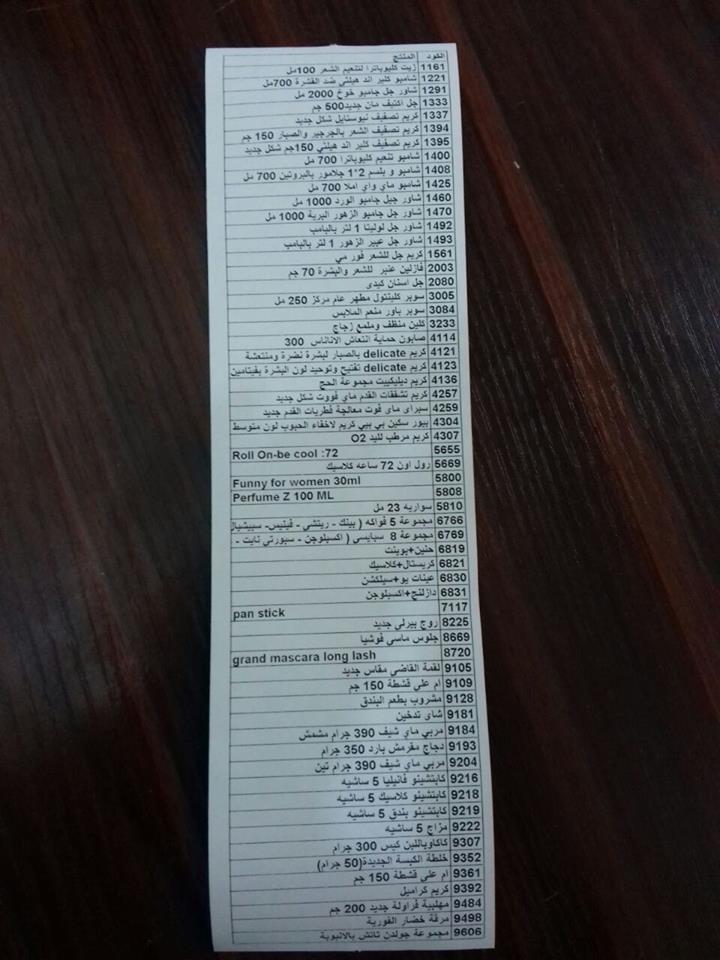 الكود المنتج
1161 زيت كليوباترا لتنعيم الشعر 100مل
1221 شامبو كلير اند هيلثى ضد القشرة 700مل
1291 شاور جل جامبو خوخ 2000 مل
1333 جل اكتيف مان جديد500 جم
1337 كريم تصفيف نيوستايل شكل جديد
1394 كريم تصفيف الشعر بالجرجير والصبار 150 جم
1395 كريم تصفيف كلير اند هيلثي 150جم شكل جديد
1400 شامبو تنعيم كليوباترا 700 مل
1408 شامبو و بلسم 2*1 جلامور بالبروتين 700 مل
1425 شامبو ماي واي املا 700 مل
1460 شاور جيل جامبو الورد 1000 مل
1470 شاور جل جامبو الزهور البرية 1000 مل
1492 شاور جل لوليتا 1 لتر بالبامب
1493 شاور جل عبير الزهور 1 لتر بالبامب
1561 كريم جل للشعر فور مي
2003 فازلين عنبر للشعر والبشرة 70 جم
2080 جل اسنان كيدى
3005 سوبر كلينتول مطهر عام مركز 250 مل
3084 سوبر باور منعم الملابس
3233 كلين منظف وملمع زجاج
4114 صابون حماية انتعاش الاناناس 300
4121 كريم delicate بالصبار لبشرة نضرة ومنتعشة
4123 كريم delicate تفتيح وتوحيد لون البشرة بفيتامين
4136 كريم ديليكييت مجموعة الحج
4257 كريم تشققات القدم ماي فووت شكل جديد
4259 سبراى ماي فوت معالجة فطريات القدم جديد
4304 بيور سكين بي بيي كريم لاخفاء الحبوب لون متوسط
4307 كريم مرطب لليد O2
5655 Roll On-be cool :72
5669 رول اون 72 ساعه كلاسيك
5800 Funny for women 30ml
5808 Perfume Z 100 ML
5810 سواريه 23 مل
6766 مجموعة 5 فواكه ( بينك - ريتشي - فيليس- سبيشيال
6769 مجموعة 8 سبايسي ( اكسبلوجن - سبورتي نايت -
6819 حنين+بوينت
6821 كريستال+كلاسيك
6830 عينات يو+سيلكشن
6831 دازلنج+اكسبلوجن
7117 pan stick
8225 روج بيرلي جديد
8669 جلوس ماسي فوشيا
8720 grand mascara long lash
9105 لقمة القاضي مقاس جديد
9109 ام على قشطة 150 جم
9128 مشروب بطعم البندق
9181 شاى تدخين
9184 مربي ماي شيف 390 جرام مشمش
9193 دجاج مقرمش بارد 350 جرام
9204 مربي ماي شيف 390 جرام تين
9216 كابتشينو فانيليا 5 ساشيه
9218 كابتشينو كلاسيك 5 ساشيه
9219 كابتشينو بندق 5 ساشيه
9222 مزاج 5 ساشيه
9307 كاكاوباللبن كيس 300 جرام
9352 خلطة الكبسة الجديدة(50 جرام)
9361 ام على قشطة 150 جم
9392 كريم كراميل
9484 مهلبية فراولة جديد 200 جم
9498 مرقة خضار الفورية
9606 مجموعة جولدن تاتش بالانبوبة